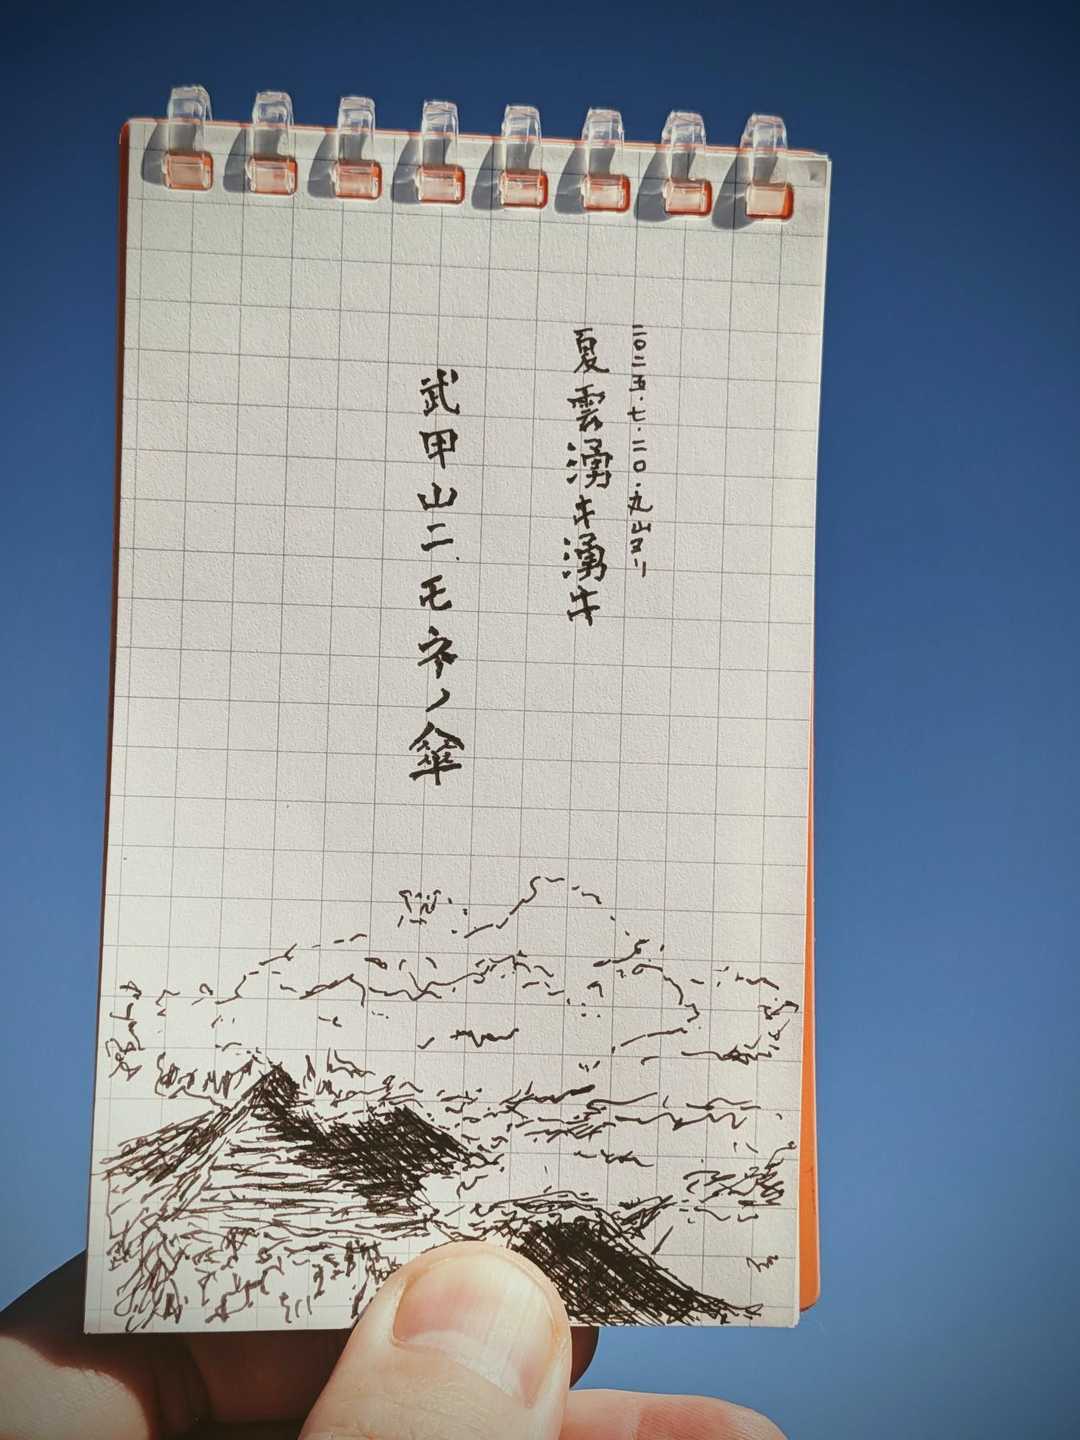 二〇二五・七・二〇・丸山ヨリ
夏雲湧キ湧キ
武甲山ニモネノ傘